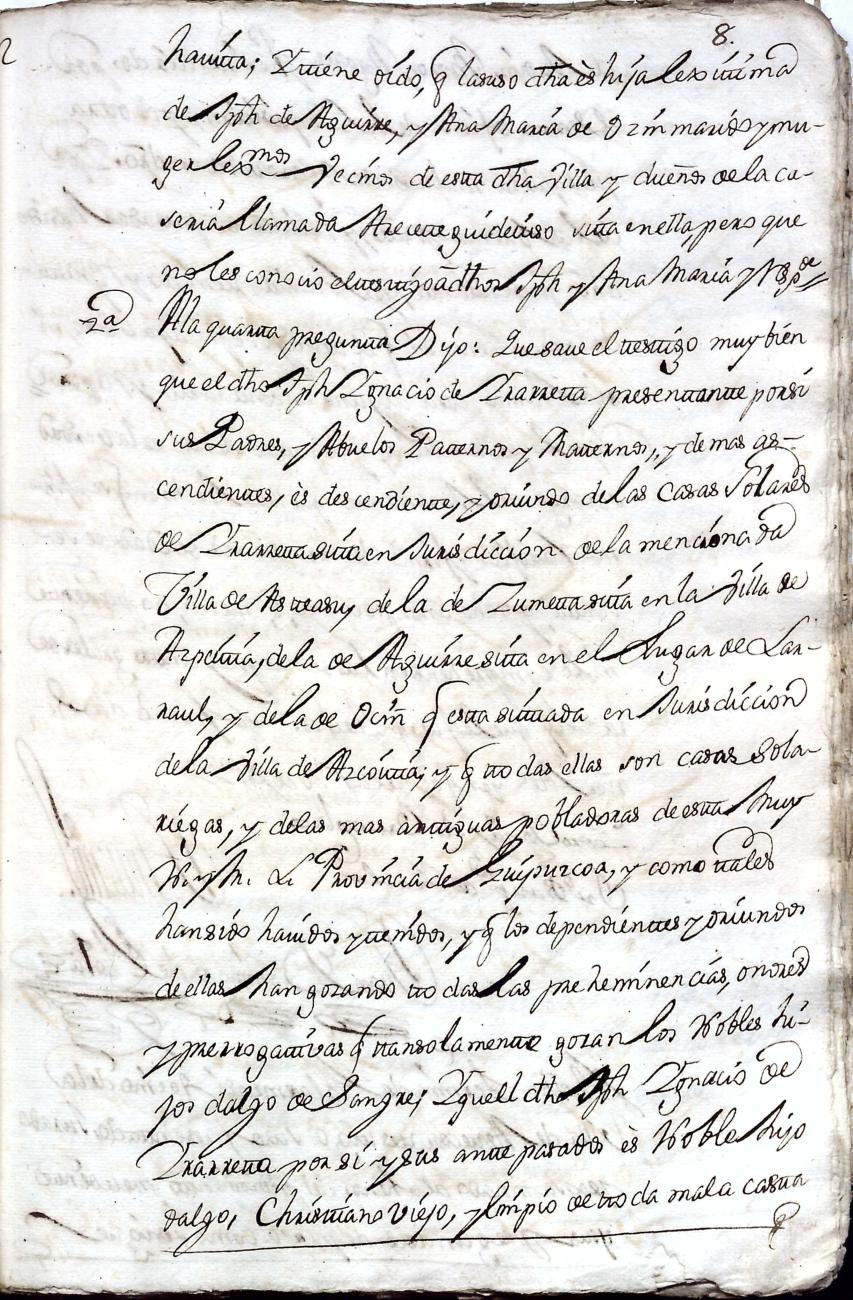 8.
havitta; Y ttiene oído, q̃ la suso dha ès hija lexittima
de Jph de Aguirre, y Ana Maria de Ozin marido y mu-
ger lex.mos Vecinos de estta dha Villa y dueños de la ca-
seria llamada Areetteguidetuso sitta en ella, pero que
no les conocio el testtigo à dhos Jph y Ana Maria y Resp.de //
4a A la quartta preguntta Dijo: Que save el testtigo muy bien
que el dho Jph Ygnacio de Yrarretta presenttantte por sí
sus Padres, y Abuelos Patternos y Matternos, y demas as-
cendienttes, ès descendientte, y oriundo de las casas Solares
de Yrarretta sitta en Jurisdiccion de la mencionada
Villa de Astteasu, de la de Zumetta sitta en la Villa de
Azpeitia, de la de Aguirre sitta en el Lugar de Lar-
raul, y de la de Ocin q̃ estta sittuada en Jurisdiccion
de la Villa de Azcoittia; y q̃ ttodas ellas son casas Sola-
riegas, y de las mas anttiguas pobladoras de estta Muy
N. y M. L. Provincia de Guipuzcoa, y como ttales
han sido havidos y ttenidos, y q̃ los dependienttes y oriundos
de ellas han gozando ttodas las preheminencias, onores
y prerrogattivas q̃ ttan solamentte gozan los Nobles hi-
jos dalgo de Sangre; Y quel dho Jph Ygnacio de
Yrarretta por sí y sus antte pasados ès Noble hijo
dalgo, Christtiano viejo, y limpio de ttoda mala castta